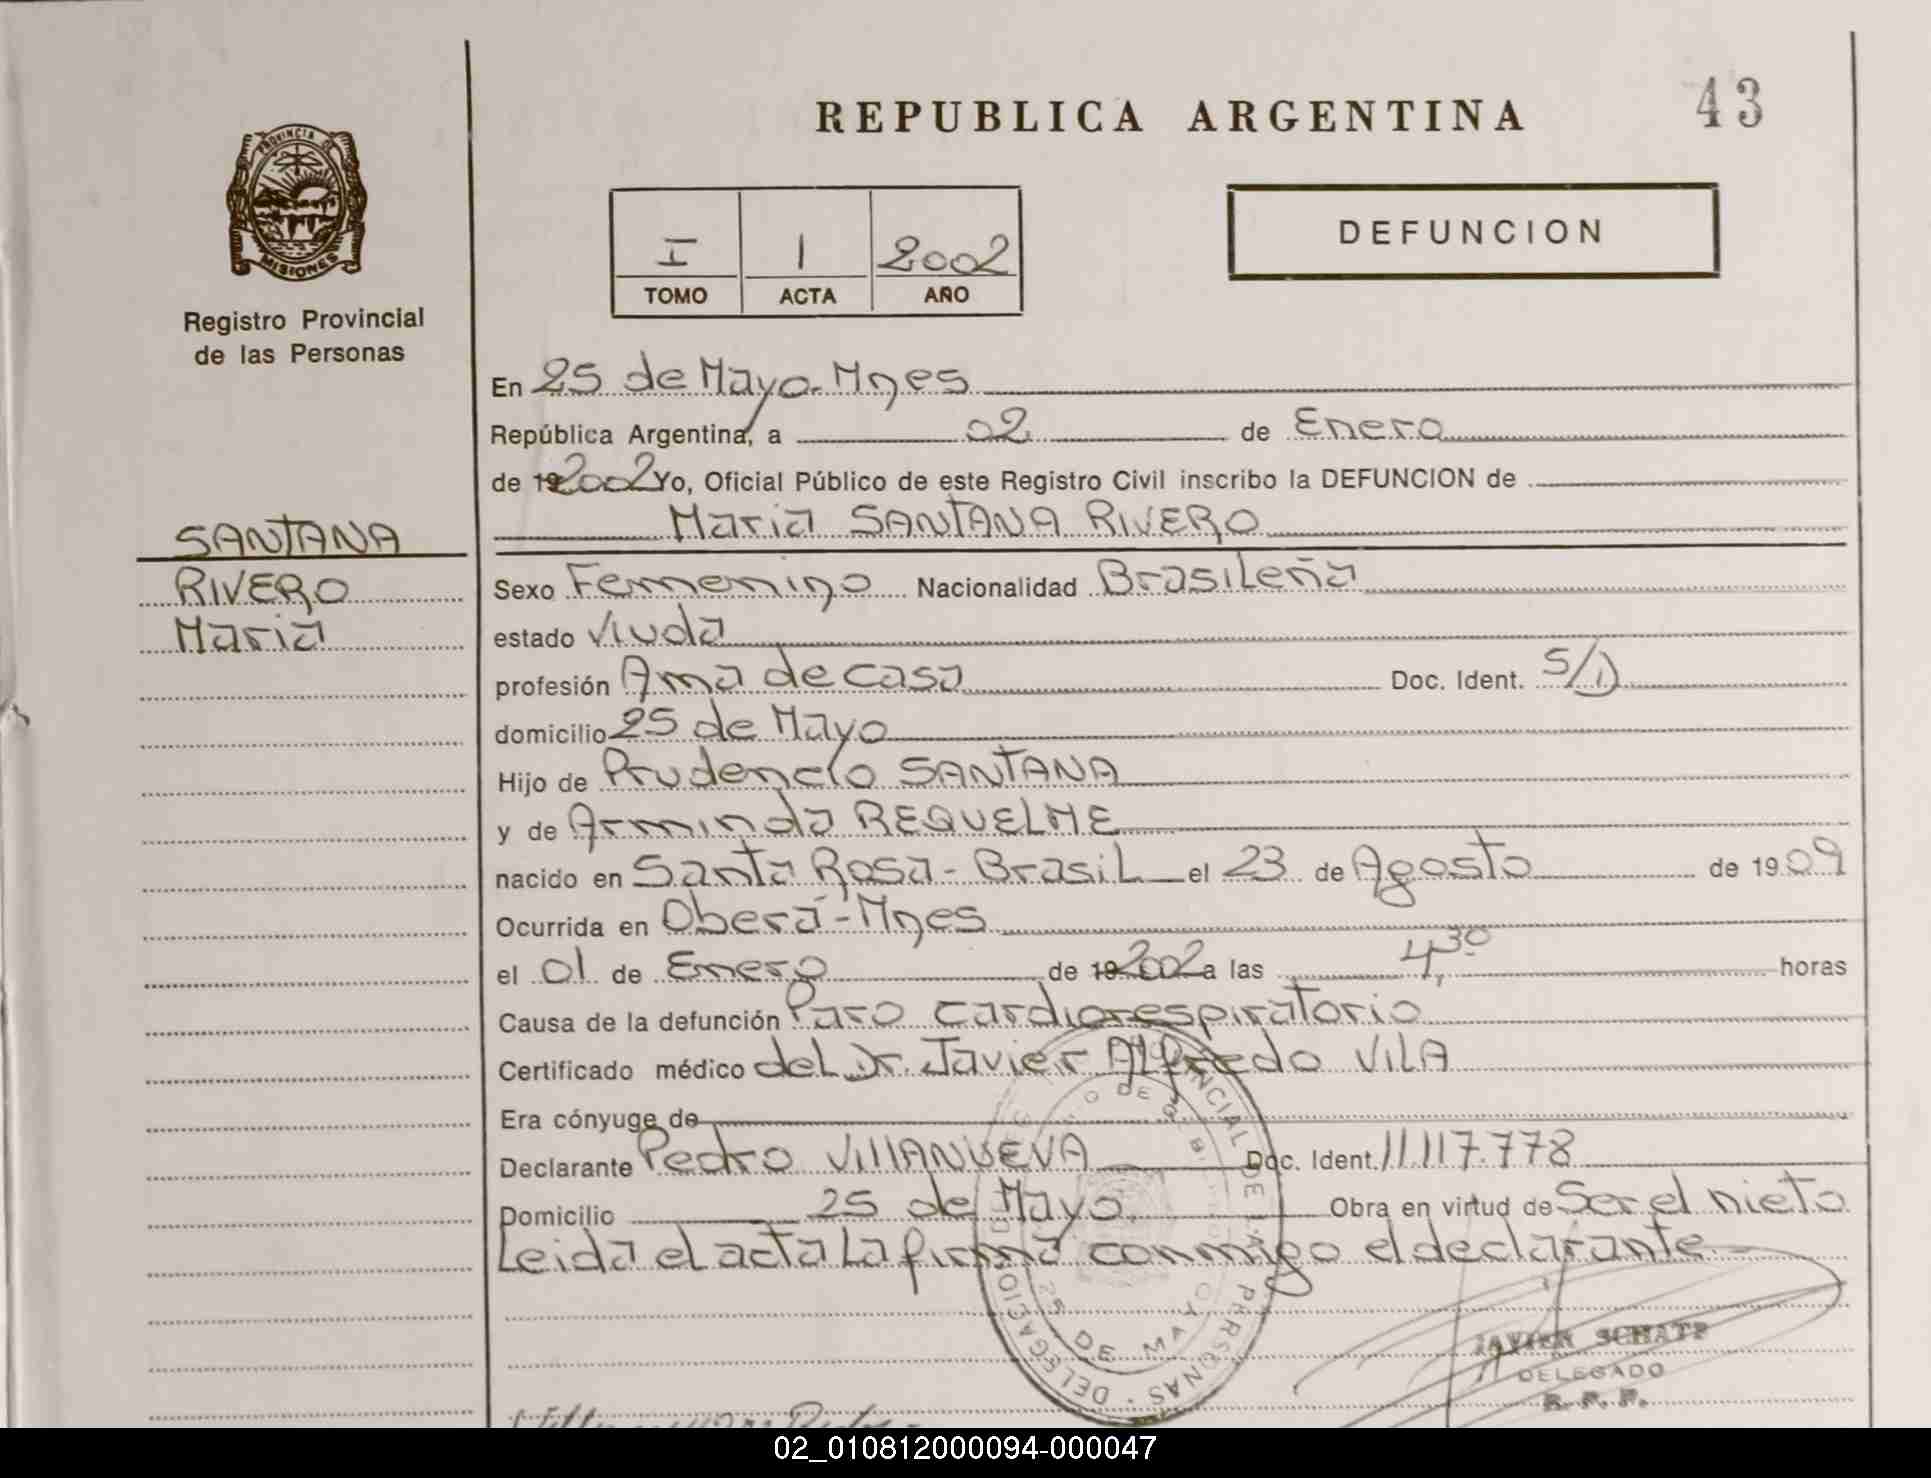 REPUBLICA ARGENTINA
43
PROVINCIA DE
MISIONES
Registro Provincial
de las Personas
I
1
2002
TOMO
ACTA
AÑO
DEFUNCION
En 25 de Mayo-Mnes
República Argentina, a 02 de Enero
de 19 2002 Yo, Oficial Público de este Registro Civil inscribo la DEFUNCION de
Maria SANTANA RIVERO
SANTANA
RIVERO
Maria
Sexo Femenino Nacionalidad Brasileña
estado Viuda
profesión Ama de casa Doc. Ident. S/D
domicilio 25 de Mayo
Hijo de Prudencio SANTANA
y de Arminda REQUELME
nacido en Santa Rosa-Brasil el 23 de Agosto de 1909
Ocurrida en Oberá-Mnes
el 01 de Enero de 19 2002 a las 4,30 horas
Causa de la defunción Paro cardiorespiratorio
Certificado médico del Dr. Javier Alfredo VILA
Era cónyuge de
Declarante Pedro VIllANUEVA Doc. Ident. 11.117.778
Domicilio 25 de Mayo Obra en virtud de Ser el nieto
Leida el acta la firma conmigo el declarante
DE LAS PERSONAS · DELEGACION
25 DE MAYO
JAVIER SCHATP
DELEGADO
R. P. P.
02_010812000094-000047